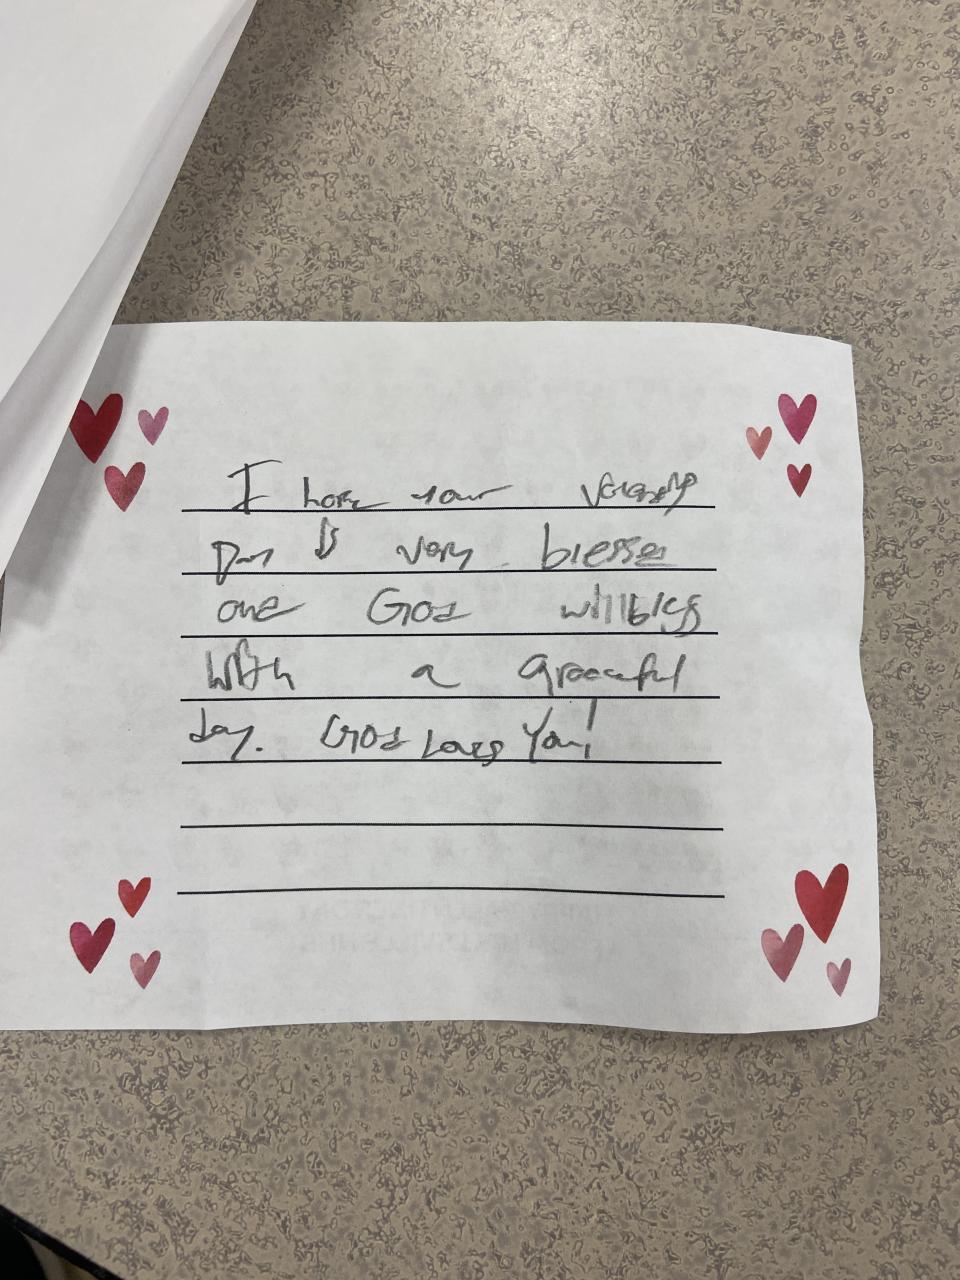 I hope your
Day is very blessed
one God will bless
With a graceful
day. God Loves You!